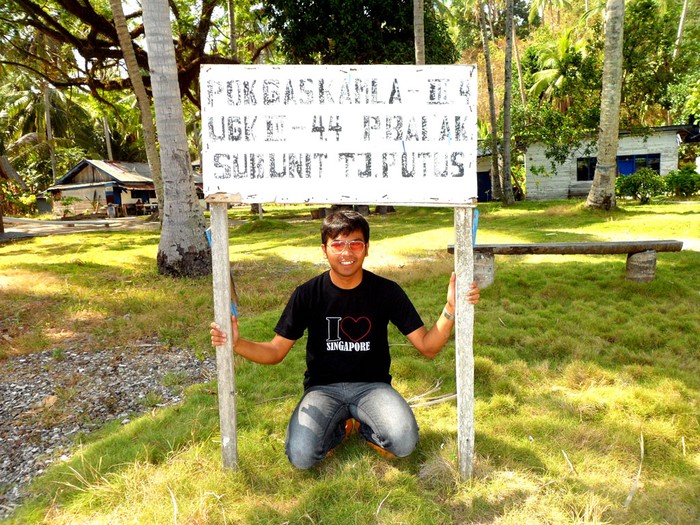 POKGASKAMLA-III4
UGK III-44 PBALAK
SUBUNIT TJ.PUTUS
I
SINGAPORE